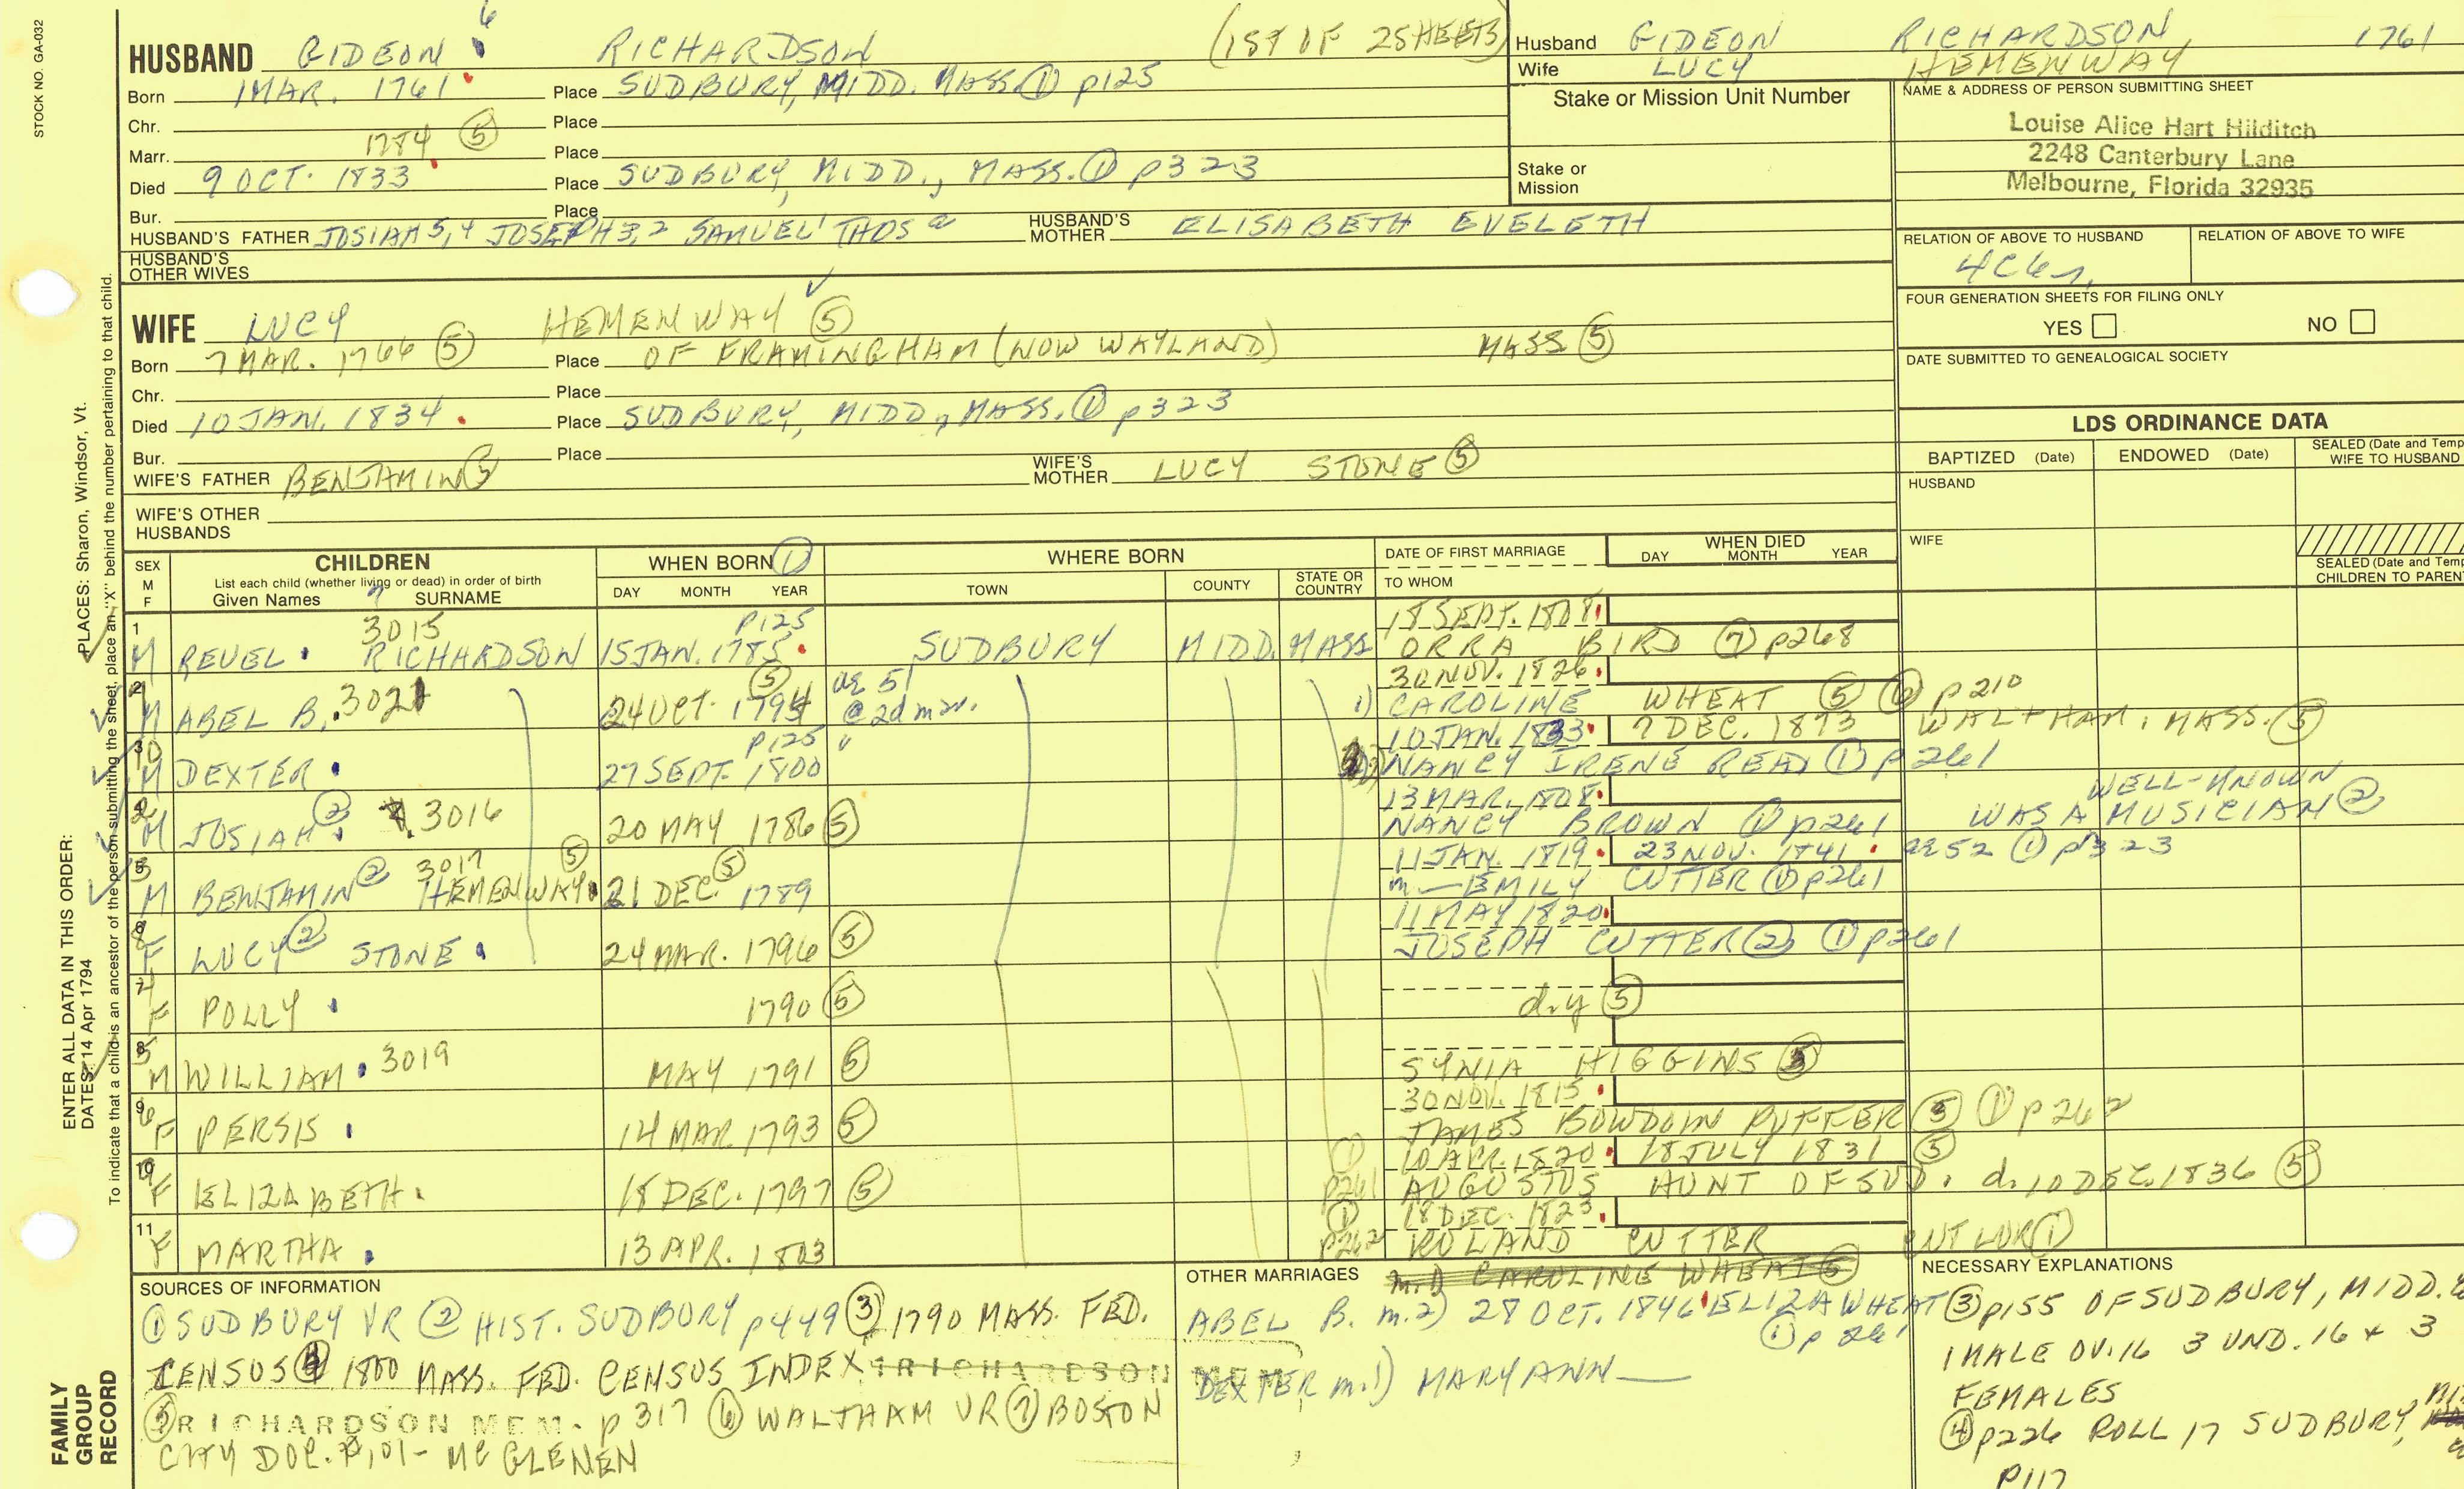 STOCK NO. GA-032
6
HUSBAND GIDEON RICHARDSON (1ST OF 2 SHEETS)
Born 1 MAR. 1761 Place SUDBURY, MIDD. MASS. ① p125
Chr. Place
Marr. 1784 ⑤ Place
Died 9 OCT. 1833 Place SUDBURY, MIDD., MASS. ① p323
Bur. Place
HUSBAND'S FATHER JOSIAH 5,4 JOSEPH 3,2 SAMUEL 1 THOS a HUSBAND'S MOTHER ELISABETH EVELETH
HUSBAND'S OTHER WIVES
WIFE LUCY HEMENWAY ⑤
Born 7 MAR. 1766 ⑤ Place OF FRAMINGHAM (NOW WAYLAND) MASS ⑤
Chr. Place
Died 10 JAN. 1834 Place SUDBURY, MIDD, MASS. ① p323
Bur. Place
WIFE'S FATHER BENJAMIN ⑤ WIFE'S MOTHER LUCY STONE ⑤
WIFE'S OTHER HUSBANDS
Husband GIDEON RICHARDSON 1761
Wife LUCY HEMENWAY
Stake or Mission Unit Number
Stake or Mission
NAME & ADDRESS OF PERSON SUBMITTING SHEET
Louise Alice Hart Hilditch
2248 Canterbury Lane
Melbourne, Florida 32935
RELATION OF ABOVE TO HUSBAND RELATION OF ABOVE TO WIFE
FOUR GENERATION SHEETS FOR FILING ONLY
YES NO
DATE SUBMITTED TO GENEALOGICAL SOCIETY
LDS ORDINANCE DATA
BAPTIZED (Date) ENDOWED (Date) SEALED (Date and Temp
WIFE TO HUSBAND
HUSBAND
WIFE
SEALED (Date and Temp
CHILDREN TO PAREN
SEX M F CHILDREN WHEN BORN ① WHERE BORN DATE OF FIRST MARRIAGE WHEN DIED
List each child (whether living or dead) in order of birth
Given Names SURNAME DAY MONTH YEAR TOWN COUNTY STATE OR COUNTRY TO WHOM DAY MONTH YEAR
1 3015 p125 18 SEPT. 1808
M REUEL RICHARDSON 15 JAN. 1785 SUDBURY MIDD. MASS ORRA BIRD ⑦ p268
2 ⑤ ae 51 30 NOV. 1826
M ABEL B. 3021 24 OCT. 1794 @ 2d mar. 1) CAROLINE WHEAT ⑤ ⑥ p210
p125 10 JAN. 1833 7 DEC. 1873 WALTHAM, MASS. ⑤
M DEXTER 27 SEPT. 1800 NANCY IRENE READ ① p261
13 MAR. 1808 WELL-KNOWN
M JOSIAH ② 3016 20 MAY 1786 ⑤ NANCY BROWN ① p261 WAS A MUSICIAN ②
3017 11 JAN. 1819 23 NOV. 1841 ae 52 ① p323
M BENJAMIN ② HEMENWAY ⑤ 21 DEC. 1789 ⑤ m— EMILY CUTTER ① p261
11 MAY 1820
F LUCY ② STONE 24 MAR. 1796 ⑤ JOSEPH CUTTER ② ① p261
F POLLY 1790 ⑤ d.y ⑤
M WILLIAM 3019 MAY 1791 ⑤ SYNIA HIGGINS
30 NOV. 1815
F PERSIS 14 MAR 1793 ⑤ JAMES BOWDOIN PUFFER ⑤ ① p262
10 ① 10 APR. 1820 18 JULY 1831 ⑤
F ELIZABETH 18 DEC. 1797 ⑤ p261 AUGUSTUS HUNT OF SUD. d. 10 DEC. 1836 ⑤
11 ① 18 DEC. 1823
F MARTHA 13 APR. 1803 p262 ROLAND CUTTER
SOURCES OF INFORMATION
① SUDBURY VR ② HIST. SUDBURY p449 ③ 1790 MASS. FED.
CENSUS ④ 1800 MASS. FED. CENSUS INDEX RICHARDSON MEM
⑤ RICHARDSON MEM. p317 ⑥ WALTHAM VR ⑦ BOSTON
CITY DOC. 101- MC GLENEN
OTHER MARRIAGES m.1) CAROLINE WHEAT ⑤
ABEL B. m.2) 28 OCT. 1846 ELIZA WHEAT
① p261
DEXTER m.1) MARY ANN —
NECESSARY EXPLANATIONS
③ p155 OF SUDBURY, MIDD.
1 MALE OV. 16 3 UND. 16 + 3
FEMALES
④ p226 ROLL 17 SUDBURY,
p117
PLACES: Sharon, Windsor, Vt.
ENTER ALL DATA IN THIS ORDER:
DATES: 14 Apr 1794
To indicate that a child is an ancestor of the person submitting the sheet, place an "X" behind the number pertaining to that child.
FAMILY
GROUP
RECORD